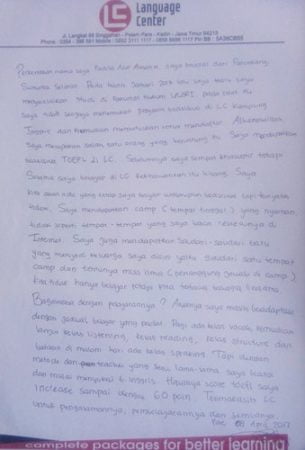 Language
Center
Jl. Langkat 88 Singgahan - Pelem Pare - Kediri - Jawa Timur 64213
Perkenalkan nama saya Amelia saya berasal dari Palembang
Sumatra Selatan. Pada bulan Januari 2017 lalu saya baru saja
menyelesaikan studi di Fakultas Hukum UNSRI, pada saat itu
saya tidak sengaja menemukan program beasiswa di LC Kampung
Inggris dan kemudian memutuskan untuk mendaftar Alhamdulillah
Saya merupakan salah satu orang yang beruntung itu. Saya mendapatkan
beasiswa TOEFL di LC. Sebelumnya saya sempat khawatir tetapi
selama saya belajar di LC kekhawatiran itu hilang. Saya
kira akan ada yang beda saya belajar walaupun beasiswa tapi ternyata
tidak. Saya mendapatkan camp (tempat tinggal) yang nyaman
tidak seperti tempat-tempat yang saya baca reviewnya di
Internet. Saya juga mendapatkan saudari-saudari baru
yang menjadi keluarga saya disini yaitu saudari satu tempat
camp dan tentunya miss Ima (penanggung jawab di camp)
kita tidak hanya belajar tetapi kita
Bagaimana dengan pelajarannya? Awalnya saya masih beradaptasi
dengan jadwal belajar yang padat. Pagi ada kelas vocab, kemudian
lanjut kelas listening, kelas reading, kelas structure dan
bahkan di malam hari ada kelas speaking. Tapi dengan
metode dan teacher yang seru lama-lama saya biasa
dan mulai menyukai b. Inggris. Hasilnya score toefl saya
increase sampai dengan 60 poin. Terimakasih LC
untuk programnya, pembelajarannya dan semuanya.
Pare, 08 April 2017
complete packages for better learning